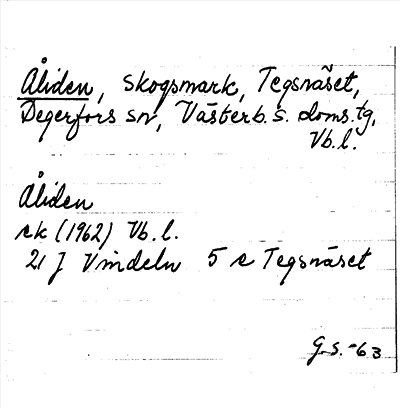 Åliden, skogsmark, Tegsnäset,
Degerfors sn, Västerb. s. doms.tg,
Vb.l.
Åliden
ek (1962) Vb.l.
21 J Vindeln 5 e Tegsnäset
G.S. -63